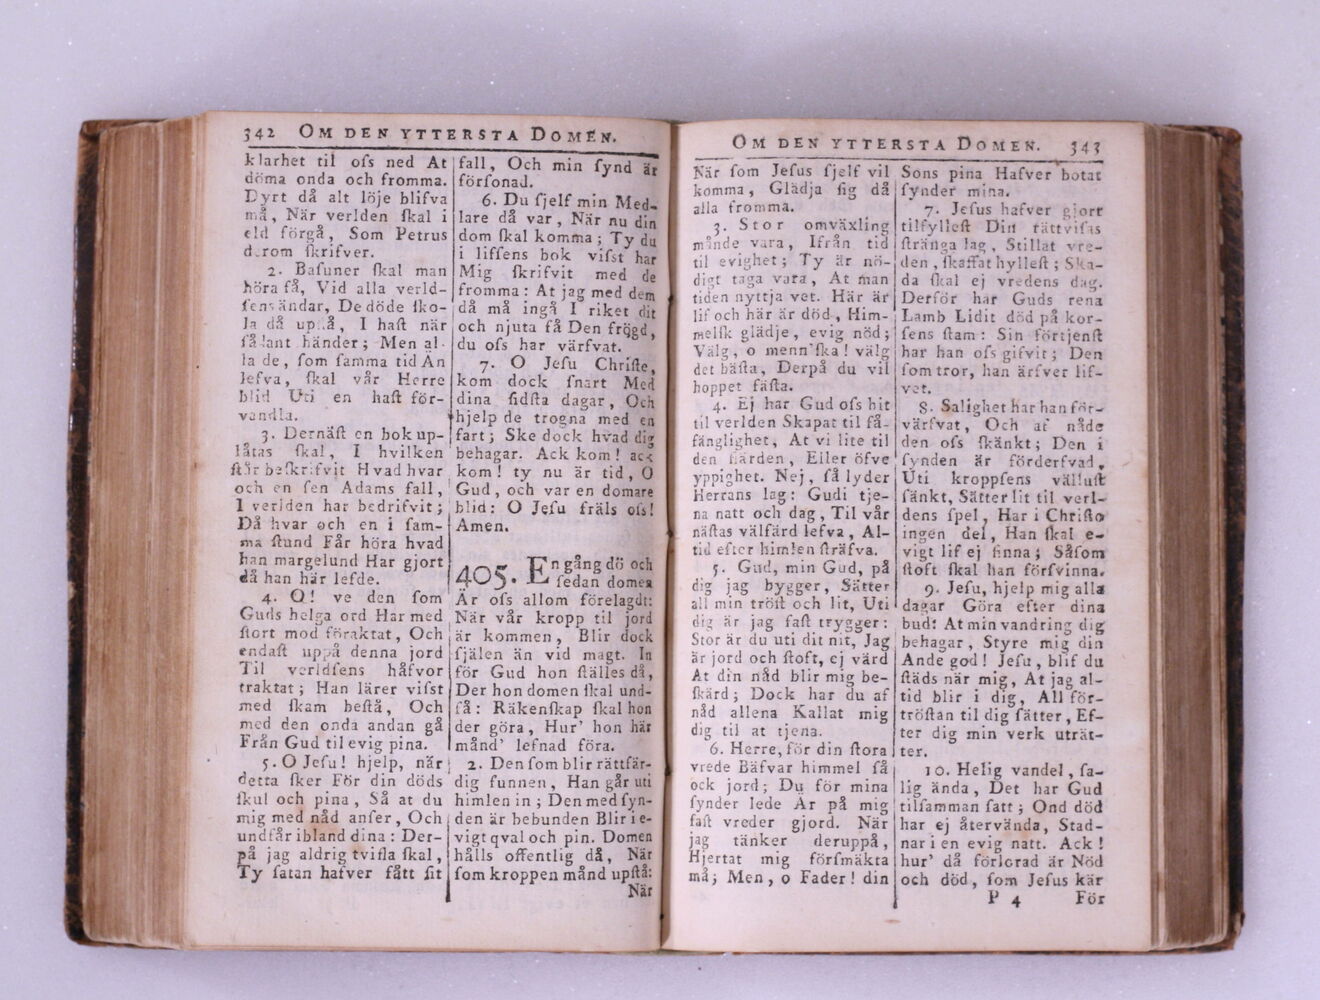 342 OM DEN YTTERSTA DOMEN.
klarhet til oſs ned At
döma onda och fromma.
Dyrt då alt löje blifva
må, När verlden ſkal i
eld förgå, Som Petrus
derom ſkrifver.
2. Baſuner ſkal man
höra få, Vid alla verld-
ſens ändar, De döde ſko-
la då upſtå, I haſt när
ſådant händer; Men al-
la de, ſom ſamma tid Än
lefva, ſkal vår Herre
blid Uti en haſt för-
vandla.
3. Dernäſt en bok up-
låtas ſkal, I hvilken
ſtår beſkrifvit Hvad hvar
och en ſen Adams fall,
I verlden har bedrifvit;
Då hvar och en i ſam-
ma ſtund Får höra hvad
han margelund Har gjort
då han här lefde.
4. O! ve den ſom
Guds helga ord Har med
ſtort mod föraktat, Och
endaſt uppå denna jord
Til verldſens håfvor
traktat; Han lärer viſst
med ſkam beſtå, Och
med den onda andan gå
Från Gud til evig pina.
5. O Jeſu! hjelp, när
detta ſker För din döds
ſkul och pina, Så at du
mig med nåd anſer, Och
undfår ibland dina: Der-
på jag aldrig tvifla ſkal,
Ty ſatan hafver fått ſit
fall, Och min ſynd är
förſonad.
6. Du ſjelf min Med-
lare då var, När nu din
dom ſkal komma; Ty du
i liſſens bok viſst har
Mig ſkrifvit med de
fromma: At jag med dem
då må ingå I riket dit
och njuta få Den frögd,
du oſs har värfvat.
7. O Jeſu Chriſte,
kom dock ſnart Med
dina ſidſta dagar, Och
hjelp de trogna med en
fart; Ske dock hvad dig
behagar. Ack kom! ack
kom! ty nu är tid, O
Gud, och var en domare
blid: O Jeſu fräls oſs!
Amen.
405. En gång dö och
ſedan domen
Är oſs allom förelagdt:
När vår kropp til jord
är kommen, Blir dock
ſjälen än vid magt. In
för Gud hon ſtälles då,
Der hon domen ſkal und-
få: Räkenſkap ſkal hon
der göra, Hur' hon här
månd' lefnad föra.
2. Den ſom blir rättfär-
dig funnen, Han går uti
himlen in; Den med ſyn-
den är bebunden Blir i e-
vigt qval och pin. Domen
hålls offentlig då, När
ſom kroppen månd upſtå:
När
OM DEN YTTERSTA DOMEN. 343
När ſom Jeſus ſjelf vil
komma, Glädja ſig då
alla fromma.
3. Stor omväxling
månde vara, Ifrån tid
til evighet; Ty är nö-
digt taga vara, At man
tiden nyttja vet. Här är
lif och här är död, Him-
melſk glädje, evig nöd;
Välg, o menn'ſka! välg
det bäſta, Derpå du vil
hoppet fäſta.
4. Ej har Gud oſs hit
til verlden Skapat til få-
fänglighet, At vi lite til
den färden, Eller öfve
yppighet. Nej, ſå lyder
Herrans lag: Gudi tje-
na natt och dag, Til vår
näſtas välfärd lefva, Al-
tid efter himlen ſträfva.
5. Gud, min Gud, på
dig jag bygger, Sätter
all min tröſt och lit, Uti
dig är jag faſt trygger:
Stor är du uti dit nit, Jag
är jord och ſtoft, ej värd
At din nåd blir mig be-
ſkärd; Dock har du af
nåd allena Kallat mig
dig til at tjena.
6. Herre, för din ſtora
vrede Bäfvar himmel ſå
ock jord; Du för mina
ſynder lede Är på mig
faſt vreder gjord. När
jag tänker deruppå,
Hjertat mig förſmäkta
må; Men, o Fader! din
Sons pina Hafver botat
ſynder mina.
7. Jeſus hafver gjort
tilfylleſt Din rättviſas
ſtränga lag, Stillat vre-
den, ſkaffat hylleſt; Ska-
da ſkal ej vredens dag.
Derför har Guds rena
Lamb Lidit död på kor-
ſens ſtam: Sin förtjenſt
har han oſs gifvit; Den
ſom tror, han ärfver lif-
vet.
8. Salighet har han för-
värfvat, Och af nåde
den oſs ſkänkt; Den i
ſynden är förderfvad,
Uti kroppſens välluſt
ſänkt, Sätter lit til verl-
dens ſpel, Har i Chriſto
ingen del, Han ſkal e-
vigt lif ej finna; Såſom
ſtoft ſkal han förſvinna.
9. Jeſu, hjelp mig alla
dagar Göra efter dina
bud: At min vandring dig
behagar, Styre mig din
Ande god! Jeſu, blif du
ſtäds när mig, At jag al-
tid blir i dig, All för-
tröſtan til dig ſätter, Ef-
ter dig min verk uträt-
ter.
10. Helig vandel, ſa-
lig ända, Det har Gud
tilſamman ſatt; Ond död
har ej återvända, Stad-
nar i en evig natt. Ack!
hur' då förlorad är Nöd
och död, ſom Jeſus kär
P 4 För